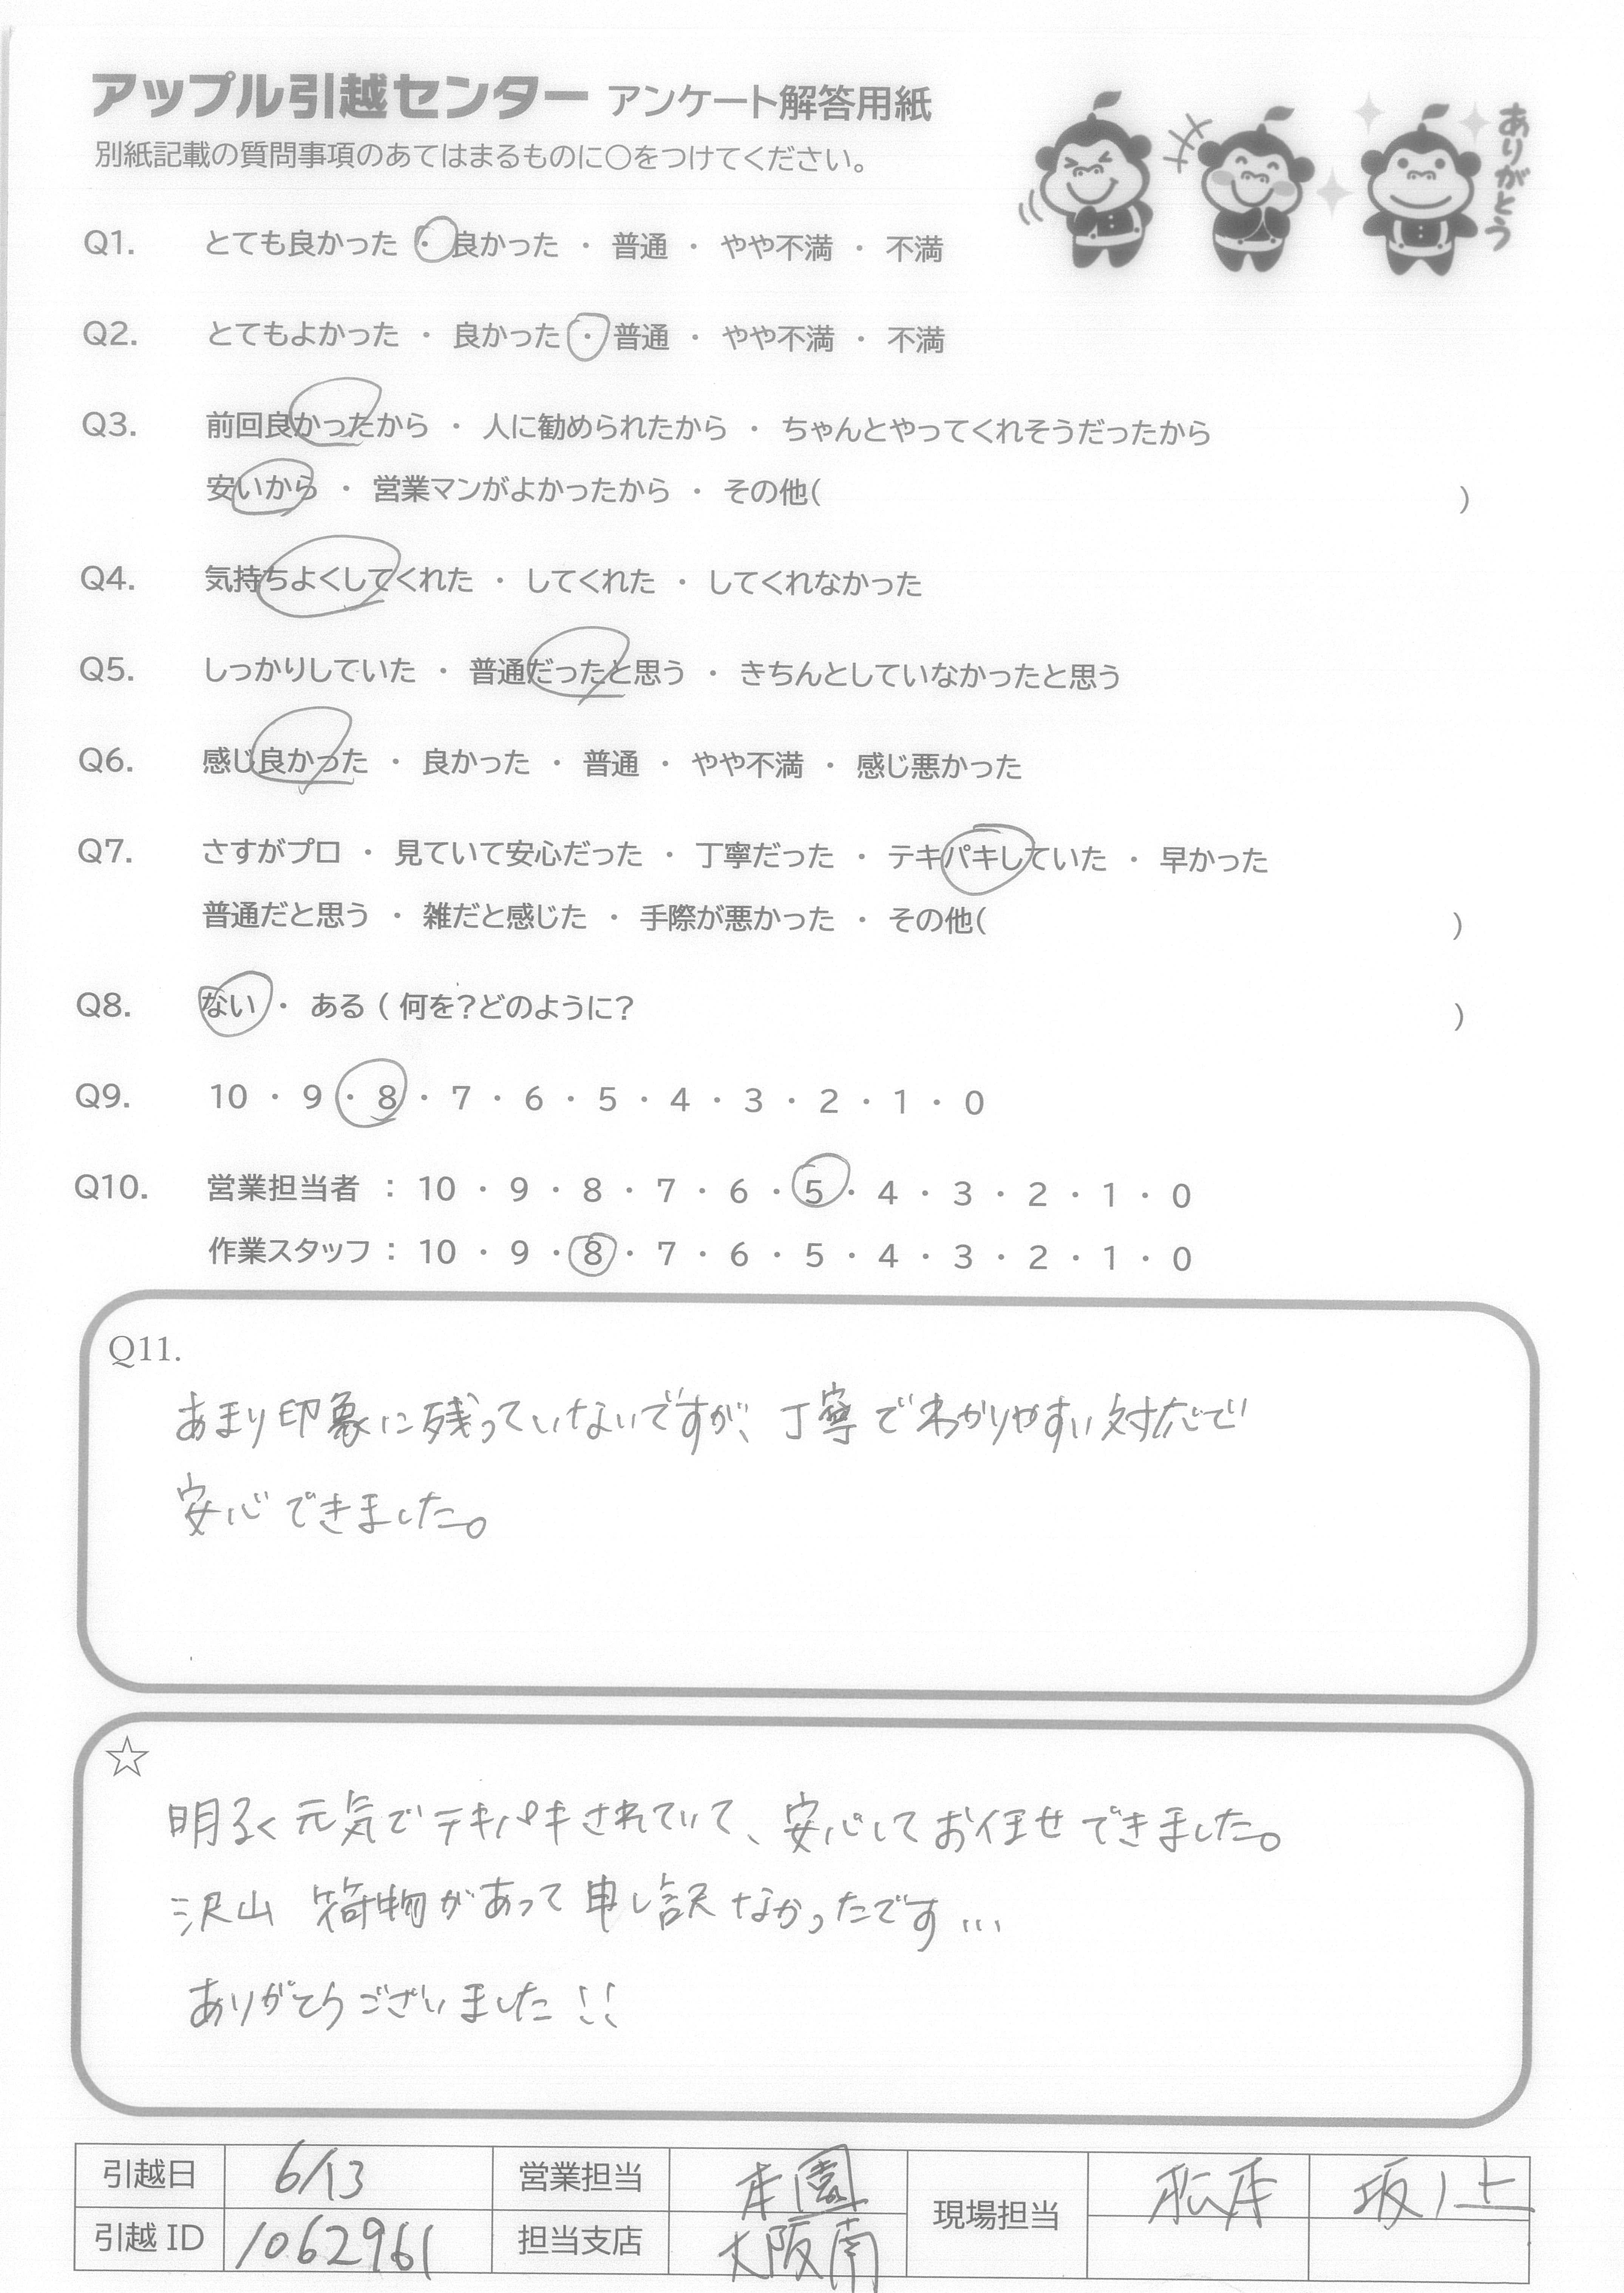 アップル引越センター アンケート解答用紙
ありがとう
別紙記載の質問事項のあてはまるものに○をつけてください。
Q1. とても良かった ・ 良かった ・ 普通 ・ やや不満 ・ 不満
Q2. とてもよかった ・ 良かった ・ 普通 ・ やや不満 ・ 不満
Q3. 前回良かったから ・ 人に勧められたから ・ ちゃんとやってくれそうだったから
安いから ・ 営業マンがよかったから ・ その他( )
Q4. 気持ちよくしてくれた ・ してくれた ・ してくれなかった
Q5. しっかりしていた ・ 普通だったと思う ・ きちんとしていなかったと思う
Q6. 感じ良かった ・ 良かった ・ 普通 ・ やや不満 ・ 感じ悪かった
Q7. さすがプロ ・ 見ていて安心だった ・ 丁寧だった ・ テキパキしていた ・ 早かった
普通だと思う ・ 雑だと感じた ・ 手際が悪かった ・ その他( )
Q8. ない ・ ある ( 何を?どのように? )
Q9. 10 ・ 9 ・ 8 ・ 7 ・ 6 ・ 5 ・ 4 ・ 3 ・ 2 ・ 1 ・ 0
Q10. 営業担当者 : 10 ・ 9 ・ 8 ・ 7 ・ 6 ・ 5 ・ 4 ・ 3 ・ 2 ・ 1 ・ 0
作業スタッフ : 10 ・ 9 ・ 8 ・ 7 ・ 6 ・ 5 ・ 4 ・ 3 ・ 2 ・ 1 ・ 0
Q11.
あまり印象に残っていないですが、丁寧でわかりやすい対応で
安心できました。
☆
明るく元気でテキパキされていて、安心してお任せできました。
沢山 荷物があって申し訳なかったです…
ありがとうございました!!
引越日 6/13 営業担当 本園 現場担当 松本 坂ノ上
引越ID 1062961 担当支店 大阪南